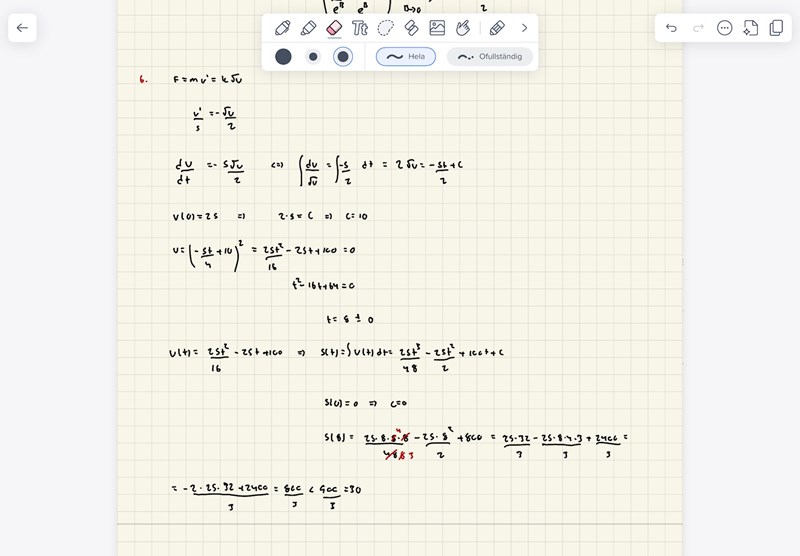 e^R e^R R→0 2
Tt
Hela Ofullständig
6. F = mv' = k√v
v'/5 = -√v/2
dv/dt = -5√v/2 <=> ∫ dv/√v = ∫ -5/2 dt = 2√v = -5t/2 + C
V(0) = 25 => 2·5 = C => C = 10
v = (-5t/4 + 10)^2 = 25t^2/16 - 25t + 100 = 0
t^2 - 16t + 64 = 0
t = 8 ± 0
V(t) = 25t^2/16 - 25t + 100 => S(t) = ∫ V(t) dt = 25t^3/48 - 25t^2/2 + 100t + C
S(0) = 0 => C = 0
S(8) = 25·8·8·8/48 4 6 3 - 25·8^2/2 + 800 = 25·32/3 - 25·8·4·3/3 + 2400/3 =
= -2·25·32 + 2400/3 = 800/3 < 900/3 = 30